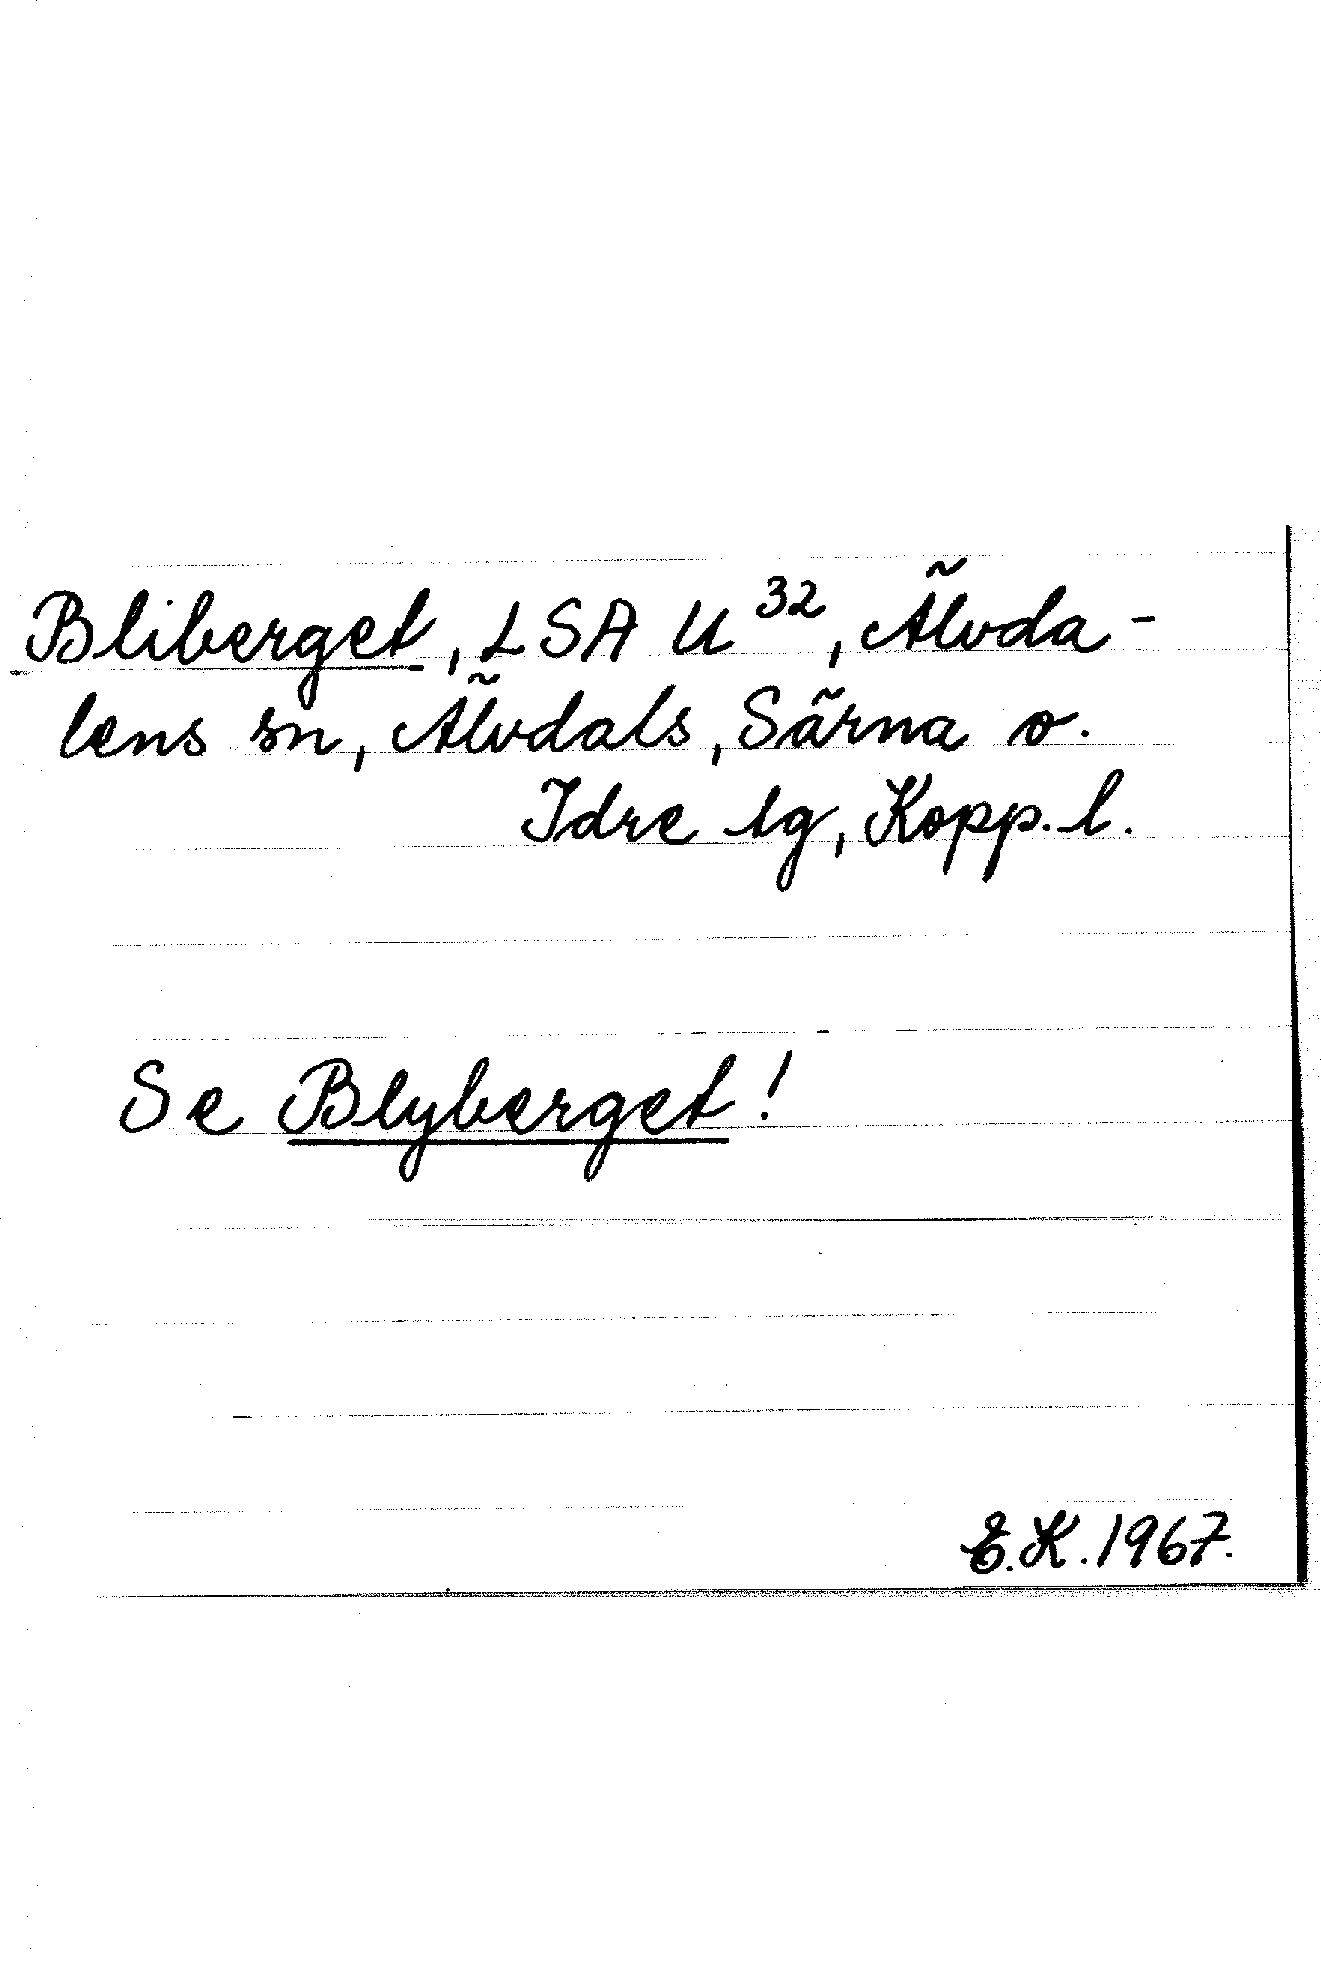 Bliberget, LSA U³², Älvda-
lens sn, Älvdals, Särna o.
Idre tg, Kopp. l.
Se Blyberget!
E.K. 1967.